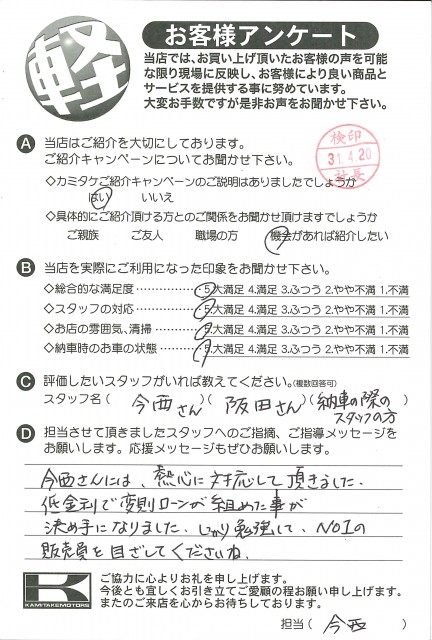 軽
お客様アンケート
当店では、お買い上げ頂いたお客様の声を可能
な限り現場に反映し、お客様により良い商品と
サービスを提供する事に努めています。
大変お手数ですが是非お声をお聞かせ下さい。
A 当店はご紹介を大切にしております。
ご紹介キャンペーンについてお聞かせ下さい。
検印
31.4.20
社長
◇カミタケご紹介キャンペーンのご説明はありましたでしょうか
はい いいえ
◇具体的にご紹介頂ける方とのご関係をお聞かせ頂けますでしょうか
ご親族 ご友人 職場の方 機会があれば紹介したい
B 当店を実際にご利用になった印象をお聞かせ下さい。
◇総合的な満足度 5.大満足 4.満足 3.ふつう 2.やや不満 1.不満
◇スタッフの対応 5.大満足 4.満足 3.ふつう 2.やや不満 1.不満
◇お店の雰囲気、清掃 5.大満足 4.満足 3.ふつう 2.やや不満 1.不満
◇納車時のお車の状態 5.大満足 4.満足 3.ふつう 2.やや不満 1.不満
C 評価したいスタッフがいれば教えてください。(複数回答可)
スタッフ名(今西さん)(阪田さん)(納車の際のスタッフの方)
D 担当させて頂きましたスタッフへのご指摘、ご指導メッセージを
お願いします。応援メッセージもぜひお願いします。
今西さんには、熱心に対応して頂きました。
低金利で変則ローンが組めた事が
決め手になりました。しっかり勉強して、NO1の
販売員を目ざしてくださいね。
K
KAMITAKEMOTORS
ご協力に心よりお礼を申し上げます。
今後とも宜しくお引き立てご愛顧の程お願い申し上げます。
またのご来店を心からお待ちしております。
担当(今西)